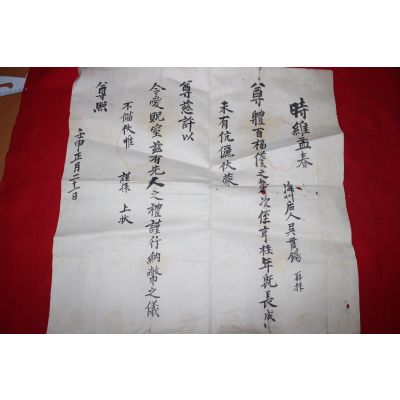 時維孟春
海州后人吳貫錫 再拜
尊體百福僕之 次侄亨桂年旣長成
未有伉儷伏蒙
尊慈許以
令愛貺室玆有先人之禮謹行納幣之儀
不備伏惟 謹拜 上狀
尊照
壬申正月二十日